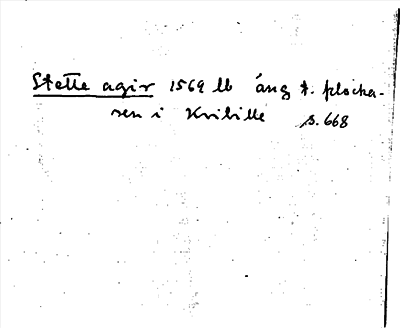 Stette agir 1569 lb äng t. plocka-
sen i Kvibille s. 668